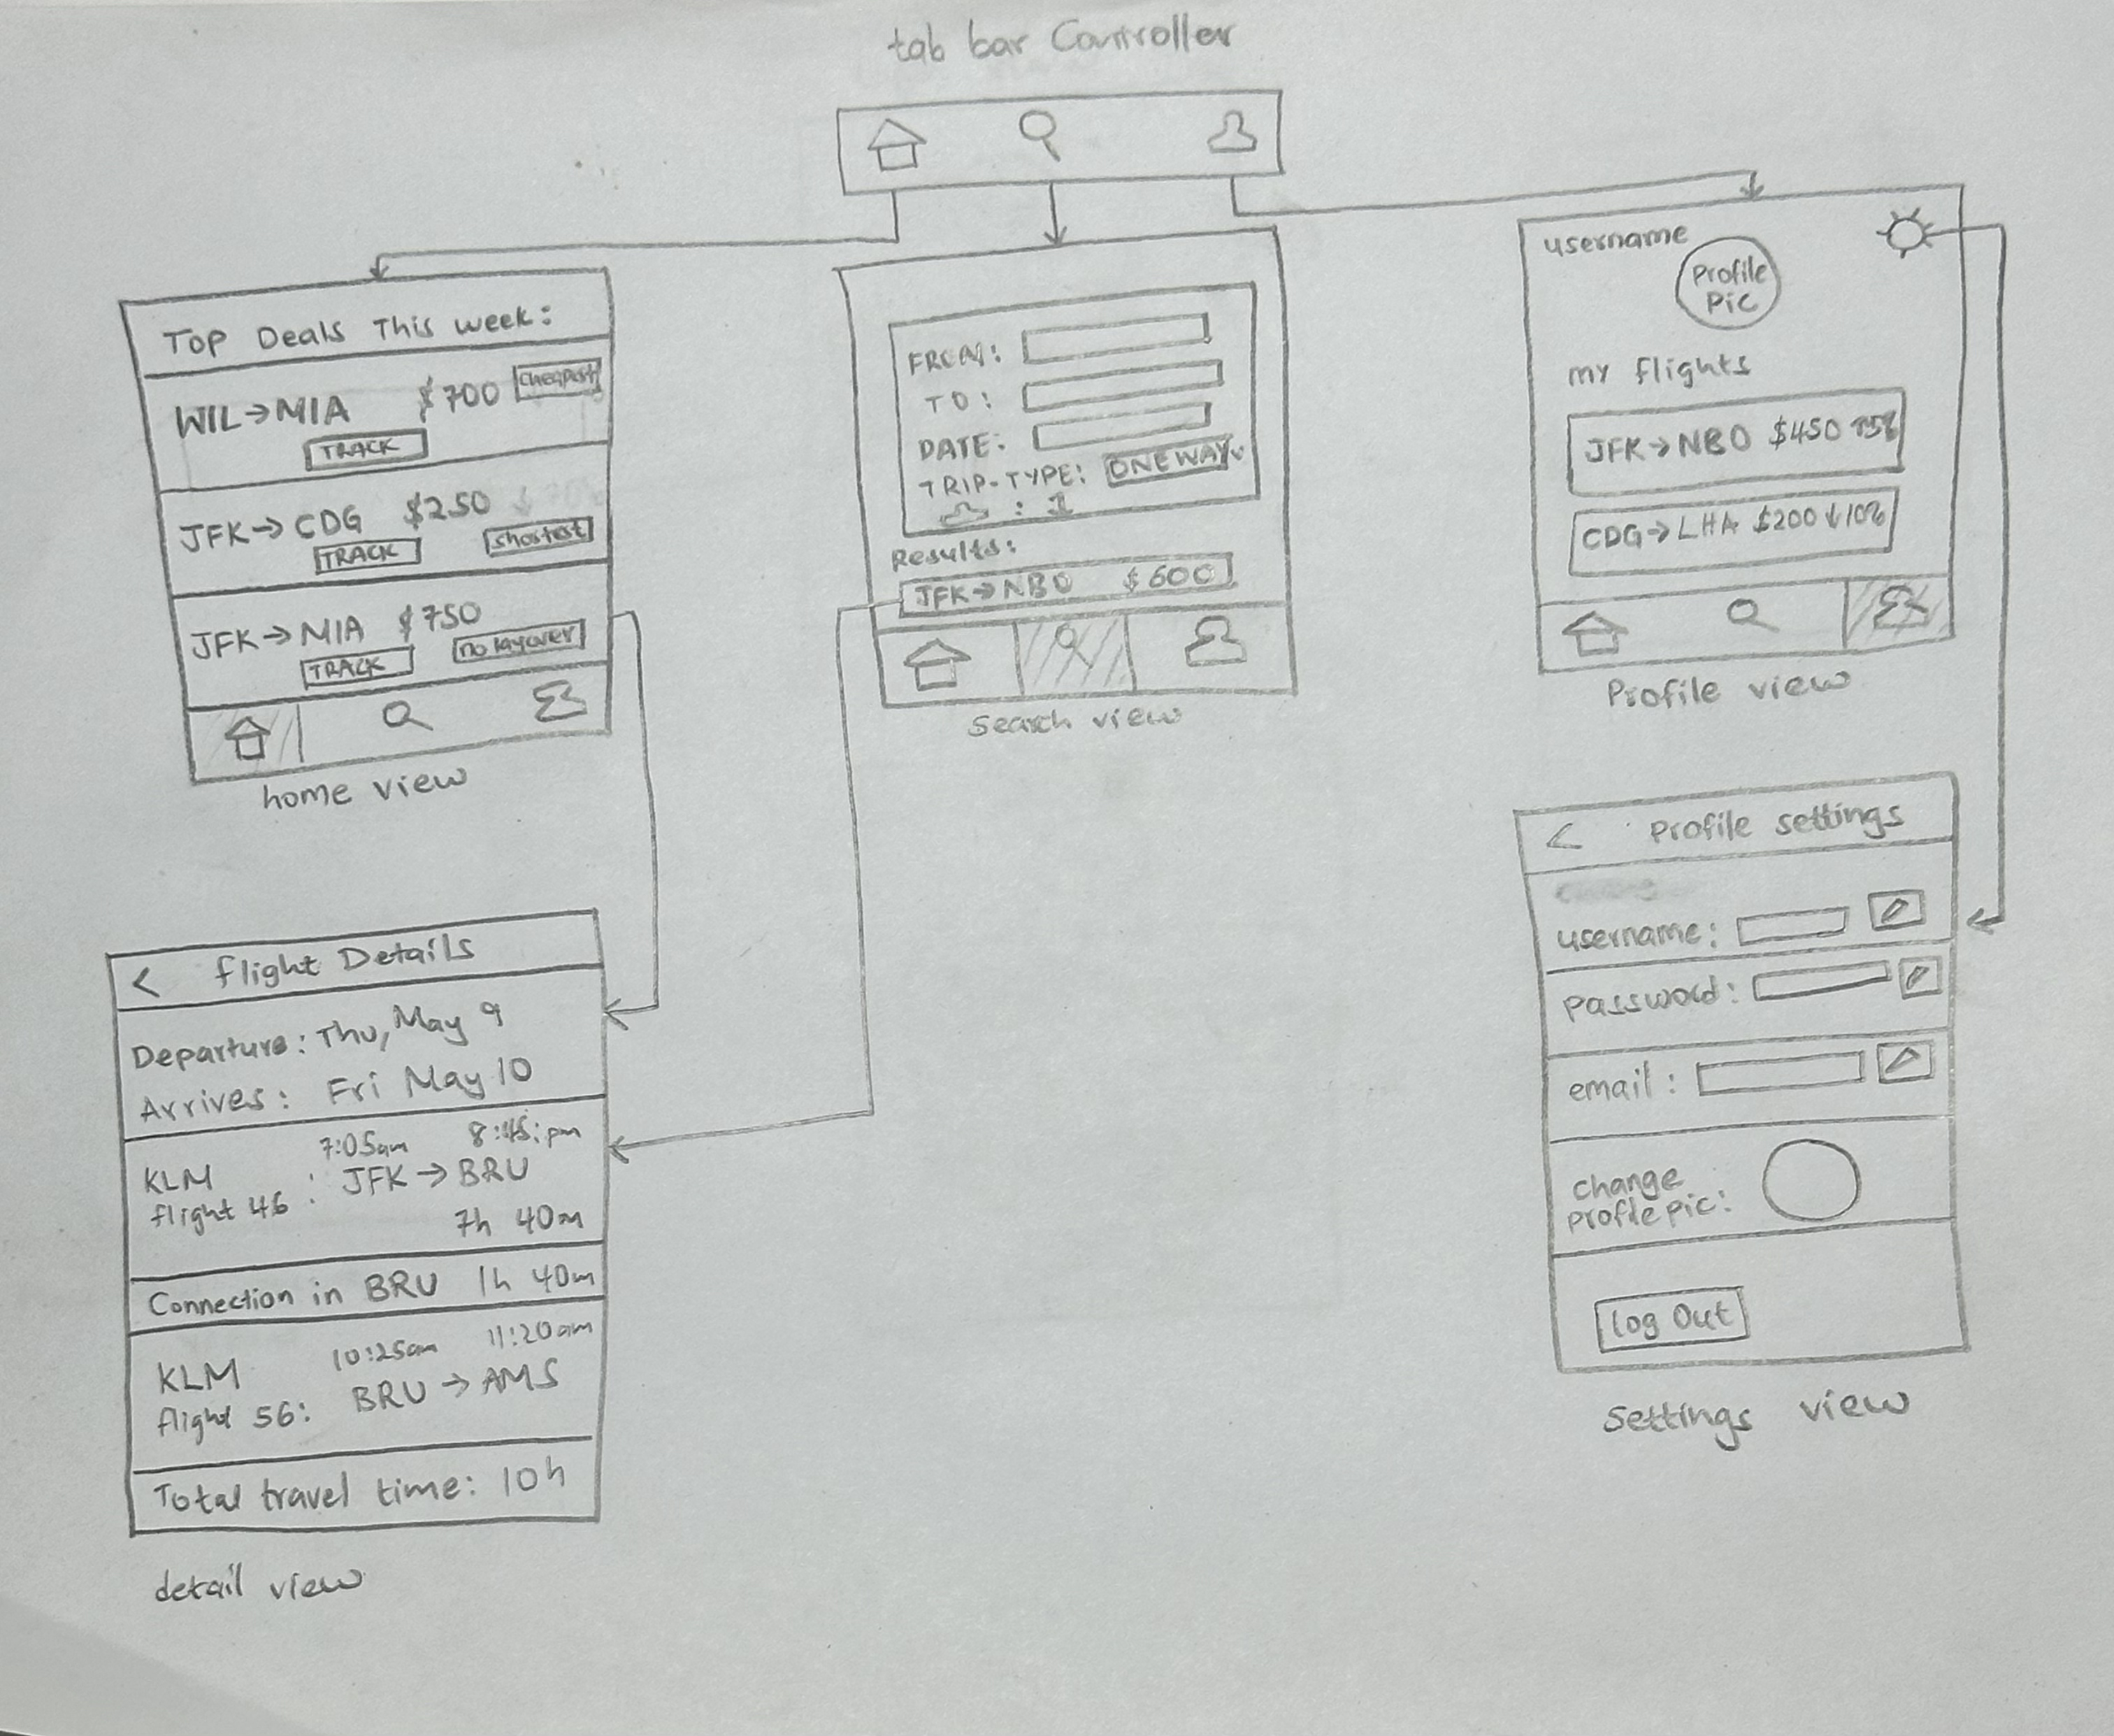 tab bar Controller
Top Deals This week:
WIL→MIA $700 cheapest
TRACK
JFK→CDG $250
TRACK shortest
JFK→MIA $750
TRACK no layover
home view
FROM:
TO:
DATE:
TRIP-TYPE: ONEWAY
: 1
Results:
JFK→NBO $600
Search view
username
Profile
Pic
my flights
JFK→NBO $450 ↑5%
CDG→LHA $200 ↓10%
Profile view
< flight Details
Departure: Thu, May 9
Arrives: Fri May 10
7:05am 8:45:pm
KLM
flight 46 : JFK → BRU
7h 40m
Connection in BRU 1h 40m
10:25am 11:20am
KLM
flight 56: BRU → AMS
Total travel time: 10h
detail view
< Profile settings
username:
Password:
email:
change
profile pic:
log Out
Settings view